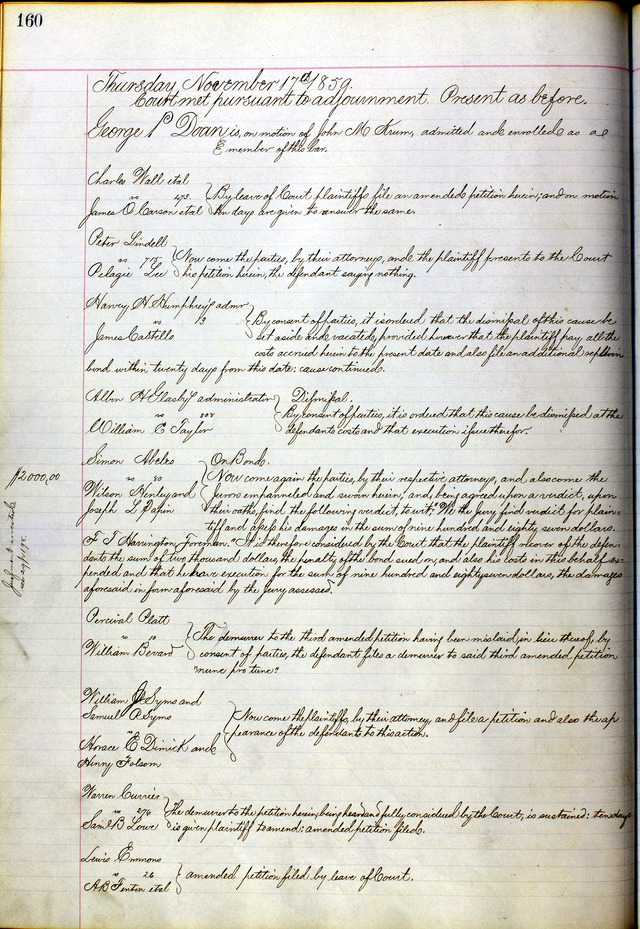 160
Thursday November 17th 1859.
Court met pursuant to adjournment. Present as before.
George P Doan is, on motion of John M Krum, admitted and enrolled as a
member of this bar.
Charles Wall etal
vs 473
James O Carson etal
By leave of Court plaintiffs file an amended petition herein; and on motion
ten days are given to answer the same.
Peter Lindell
vs
Pelagie Lee
Now come the parties, by their attorneys, and the plaintiff presents to the Court
his petition herein, the defendant saying nothing.
Harvey H Humphreys admr
vs 13
James Castello
By consent of parties, it is ordered that the dismissal of this cause be
set aside and vacated, provided however that the plaintiff pay all the
costs accrued herein to the present date and also file an additional replevin
bond within twenty days from this date: cause continued.
Albin H Glasby administrator
vs
William E Taylor
Dismissal.
By consent of parties, it is ordered that this cause be dismissed at the
defendants costs and that execution issue therefor.
$2000,00
Simon Abeles
vs 20
Wilson Henley and
Joseph L Papin
On Bond.
Now come again the parties, by their respective attorneys, and also come the
jurors empanneled and sworn herein; and, being agreed upon a verdict, upon
their oaths, find the following verdict to wit; "We the jury find verdict for plain-
tiff and assess his damages in the sum of nine hundred and eighty seven dollars.
F. T. Harrington, Foreman." It is therefore considered by the Court that the plaintiff recover of the defen-
dants the sum of two thousand dollars, the penalty of the bond sued on; and also his costs in this behalf ex-
pended and that he have execution for the sum of nine hundred and eighty seven dollars, the damages
aforesaid in form aforesaid by the jury assessed.
Percival Platt
vs 10
William Bevard
The demurrer to the third amended petition having been mislaid, in lieu thereof, by
consent of parties, the defendant files a demurrer to said third amended petition
"nunc pro tunc."
William J Syms and
Samuel R Syms
vs
Horace E Dimick and
Henry Folsom
Now come the plaintiffs, by their attorney, and file a petition and also the ap
pearance of the defendants to this action.
Warren Currier
vs 276
Saml B Lowe
The demurrer to the petition herein, being heard and fully considered by the Court, is sustained: ten days
is given plaintiff to amend: amended petition filed.
Lewis Emmons
vs 26
A B Fenton etal
amended petition filed by leave of Court.